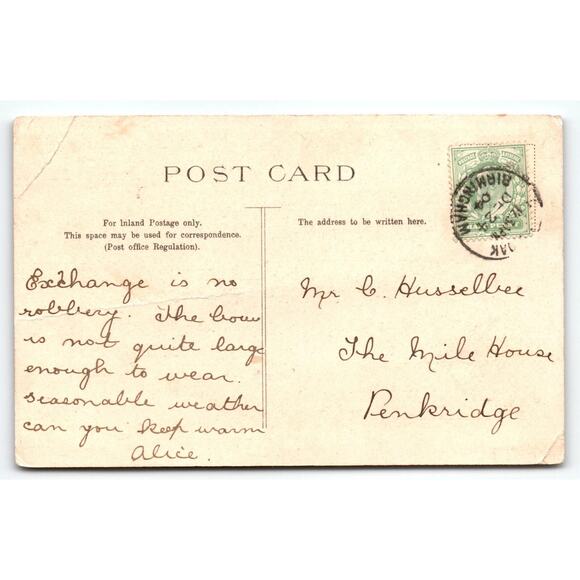 POST CARD
For Inland Postage only.
This space may be used for correspondence.
(Post office Regulation).
The address to be written here.
Exchange is no
robbery. The bow
is not quite large
enough to wear.
Seasonable weather
can you keep warm
Alice.
Mr C. Husselbee
The Mile House
Penkridge
BIRMINGHAM
OAK